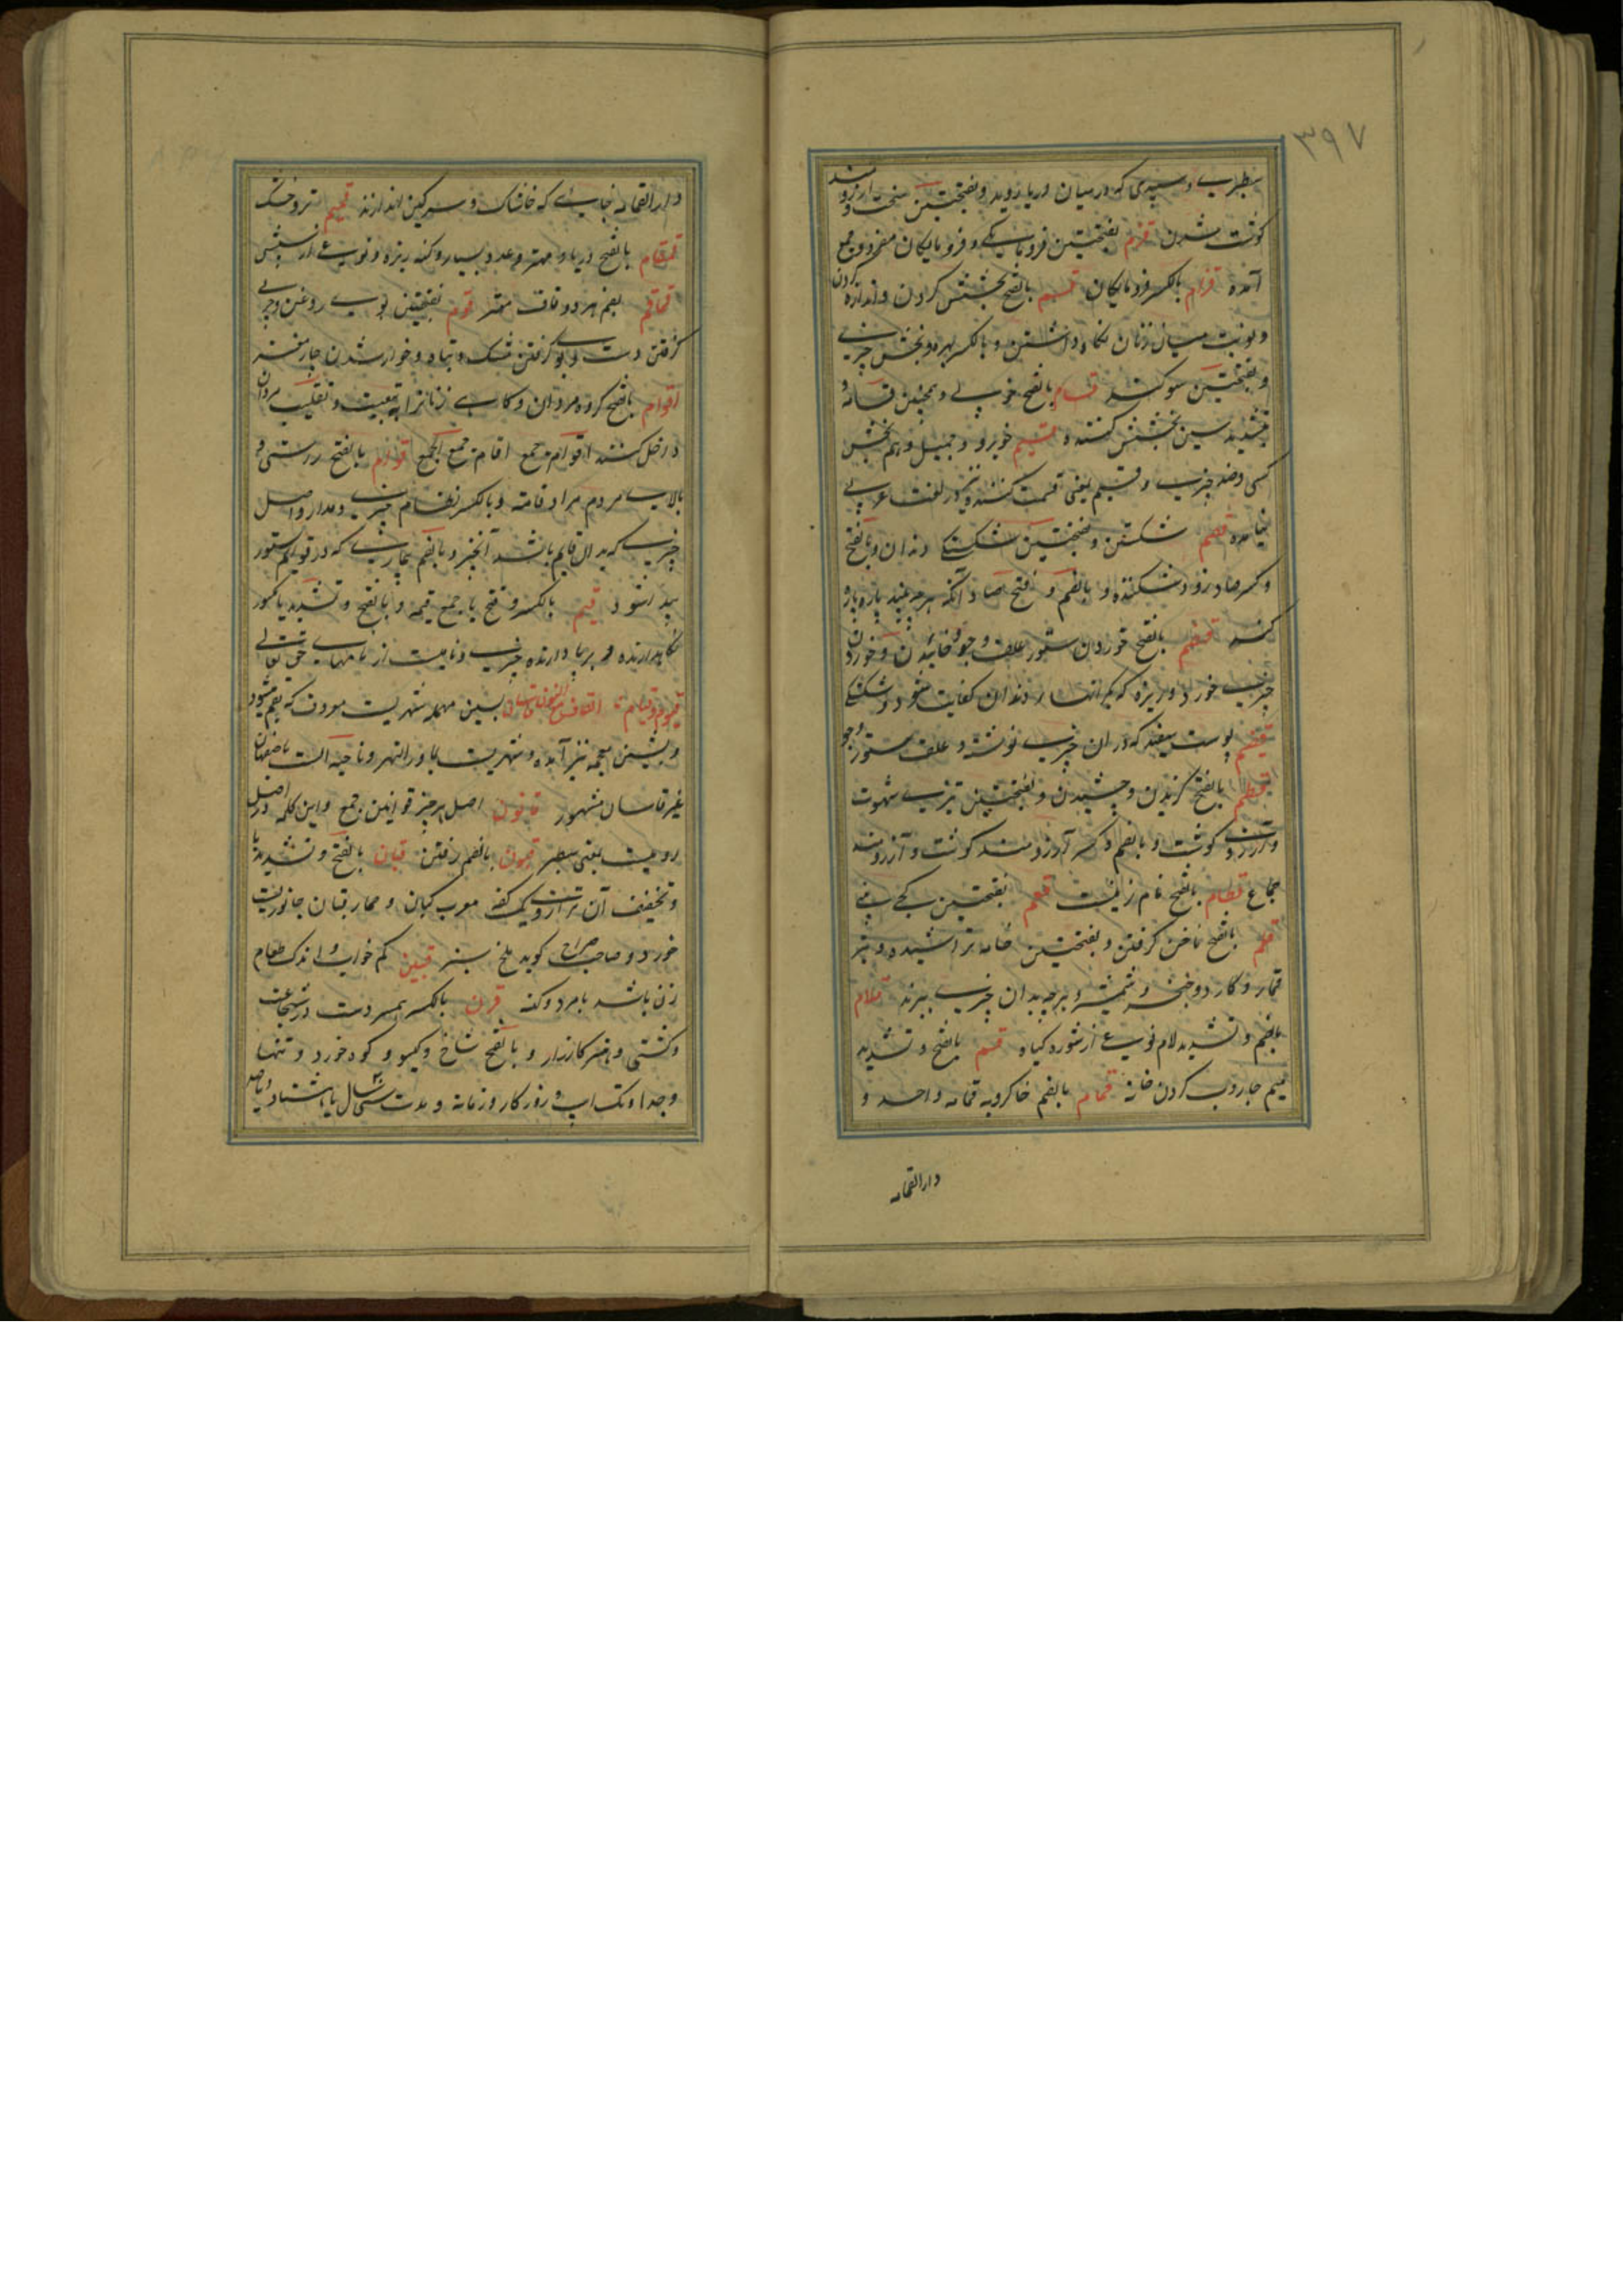 ۳۹۷
سطبری و سپیدی که در میان دریا روید و بفتحتین سخت آرزومند
گوشت شدن قزم بفتحتین فرومایگی و فرومایگان مفرد و جمع
آمده قزام بالکسر فرومایگان قسم بالفتح بخشش کردن و اندازه کردن
و نوبت میان زنان نگاه داشتن و بالکسر بهره و بخش چیزی
و بفتحتین سوگند قسام بالفتح خوبی و همچنین قسامه و
بتشدید سین بخشش کننده قسیم خوبرو و جمیل و هم بخش
کسی و ضد چیزی و قسیم یعنی قسمت کننده نیز در لغت عربی
نیامده قصم شکستن و بفتحتین شکستگی دندان و بالفتح
و کسر صاد زود شکننده و بالضم و فتح صاد آنکه هرچه بیند پاره پاره
کند قضم بالفتح خوردن ستور علف و جو و خائیدن و خوردن
چیزی خورد و ریزه که بکم انتهاء دندان کفایت شود و شکستگی
قضیم پوست سفید که در آن چیزی نوشته و علف ستور و جو
قطم بالفتح گزیدن و چشیدن و بفتحتین تیزی شهوت
و آرزوی گوشت و بالضم و کسر آرزومند گوشت و آرزومند
جماع قطام بالفتح نام زنیست قعم بفتحتین کجی بینی
قلم بالفتح ناخن گرفتن و بفتحتین خامه تراشیده و تیر
قمار و کارد و شمشیر و هرچه بدان چیزی ببرند قلام
بالضم و تشدید لام نوعی از شوره گیاه قسم بالفتح و تشدید
میم جاروب کردن خانه قمام بالضم خاکروبه قمامه واحد و
دارالقمامه
دارالقمامه جایی که خاشاک و سرگین اندازند قمیم تر و خشک
قمقام بالفتح دریا و مهتر و عدد بسیار و کنه ریزه و نوعی از سپش
قماقم بضم هر دو قاف مهتر قنم بفتحتین بوی روغن و چربی
گرفتن دست و بوی گرفتن مشک و تباه و خوار شدن چارمغز
اقوام بالفتح گروه مردان و گاهی زنانرا به تبعیت و تغلیب مردان
داخل کنند اقوام جمع اقاوم جمع الجمع قوام بالفتح راستی و
بالای مردم مرادف قامه و بالکسر نظام چیزی و مدار و اصل
چیزی که بدان قایم باشد آنچیز و بالضم بیماریی که در قوایم ستور
پیدا شود قیم بالکسر و فتح یا جمع قیمه و بالفتح و تشدید یا مکسور
نگاهدارنده و برپا دارنده چیزی و نامیست از نامهای حق تعالی
قیوم و قیام القاف مع النون قاسان بسین مهمله شهریست معروف که بقم میشود
و بشین معجمه نیز آمده و شهریست بماوراءالنهر و ناحیه است باصفهان
غیر قاسان مشهور قانون اصل هر چیز قوانین جمع و این کلمه در اصل
رومیست بمعنی مسطر قبون بالضم رفتن قبان بالفتح و تشدید با
و تخفیف آن ترازوی یک کفه معرب کپان و حمار قبان جانوریست
خورد و صاحب صراح گوید ملخ سبز قتین کم خوراک و اندک طعام
زن باشد یا مرد و کنه قرن بالکسر همسر دست در شجاعت
و کشتی و هنر کارزار و بالفتح شاخ و گیسو و کوه خورد و تنها
و جدا و تک اسپ و روزگار و زمانه و مدت سی سال یا هشتاد و یا صد